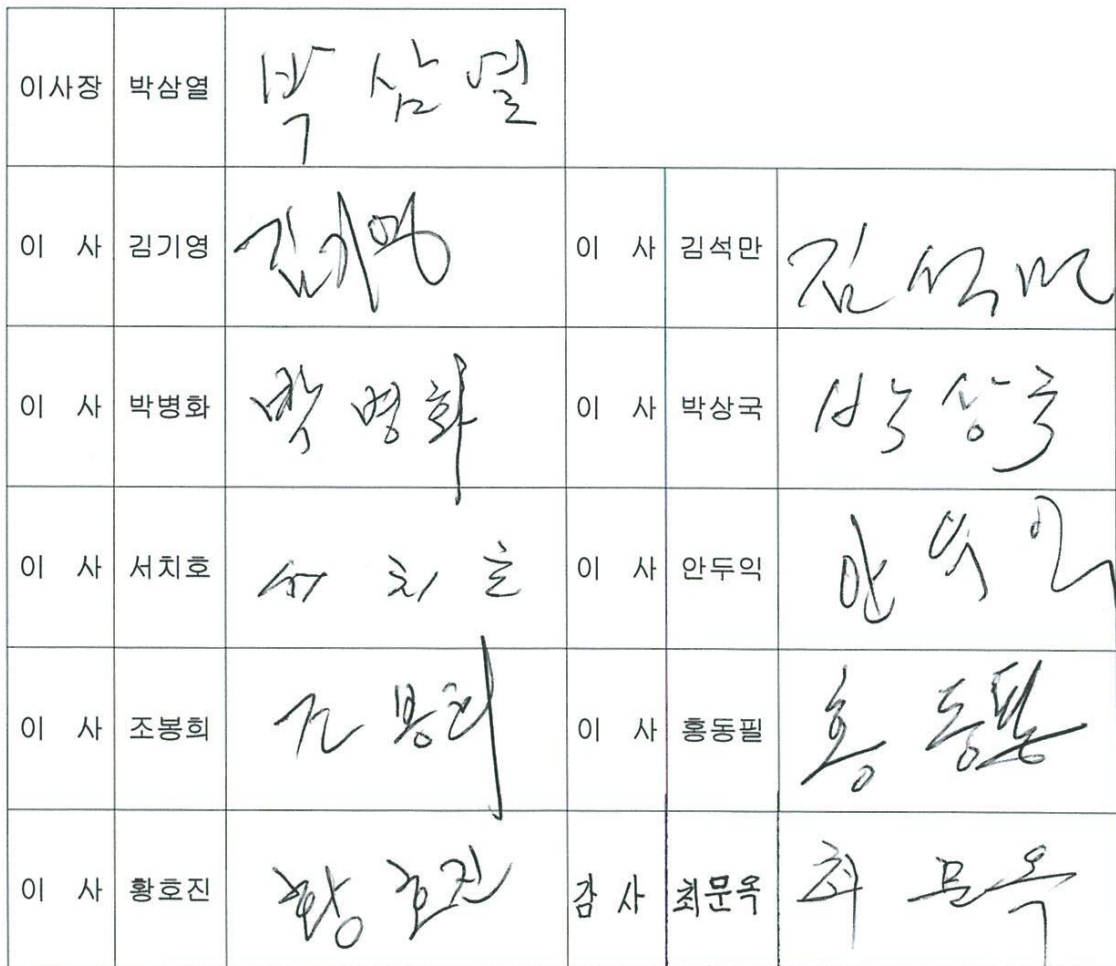 이사장 박삼열 박삼열
이 사 김기영 김기영 이 사 김석만 김석만
이 사 박병화 박병화 이 사 박상국 박상국
이 사 서치호 서치호 이 사 안두익 안두익
이 사 조봉희 조봉희 이 사 홍동필 홍동필
이 사 황호진 황호진 감 사 최문옥 최문옥